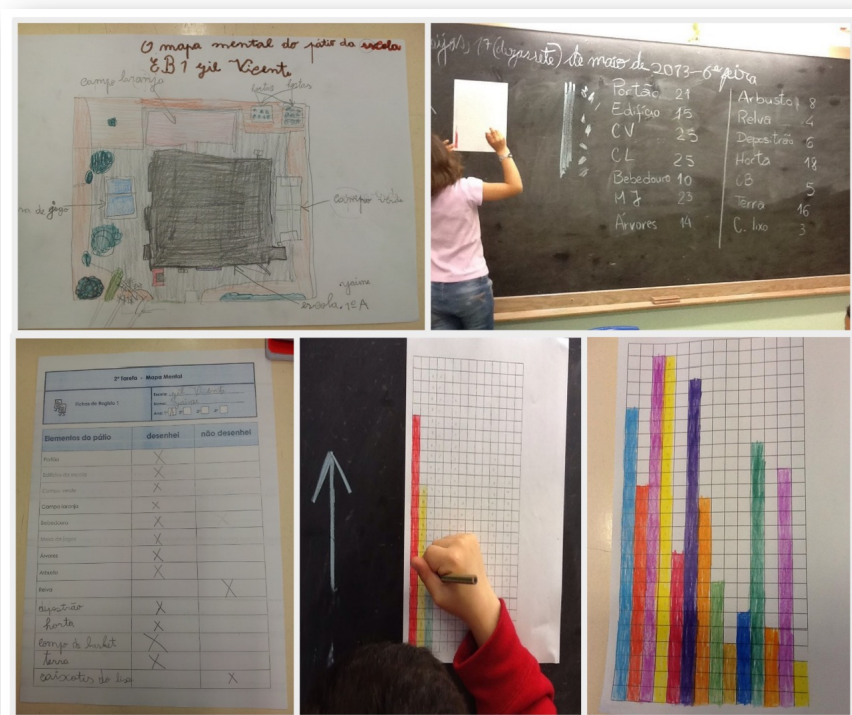 O mapa mental do pátio da escola
EB1 gil Vicente
campo laranja
hortas hortas
de jogo
campo verde
escola. 1º A
17 (dezassete) de maio de 2013-6ª feira
Portão 21
Edifício 15
CV 25
CL 25
Bebedouro 10
M J 23
Árvores 14
Arbusto 8
Relva 4
Depostrão 6
Horta 18
CB 5
Terra 16
C. lixo 3
2ª tarefa - Mapa Mental
Fichas de Registo 1
Elementos do pátio desenhei não desenhei
Portão X
Edifício da escola X
Campo verde X
Campo laranja X
Bebedouro X
Mesa de jogo X
Árvores X
Arbusto X
Relva X
X
horta X
campo de basket X
terra X
caixotes do lixo X